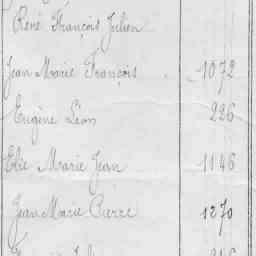 René François Julien
Jean Marie François 1072
Eugène Léon 226
Elie Marie Jean 1146
Jean Marie Pierre 1270